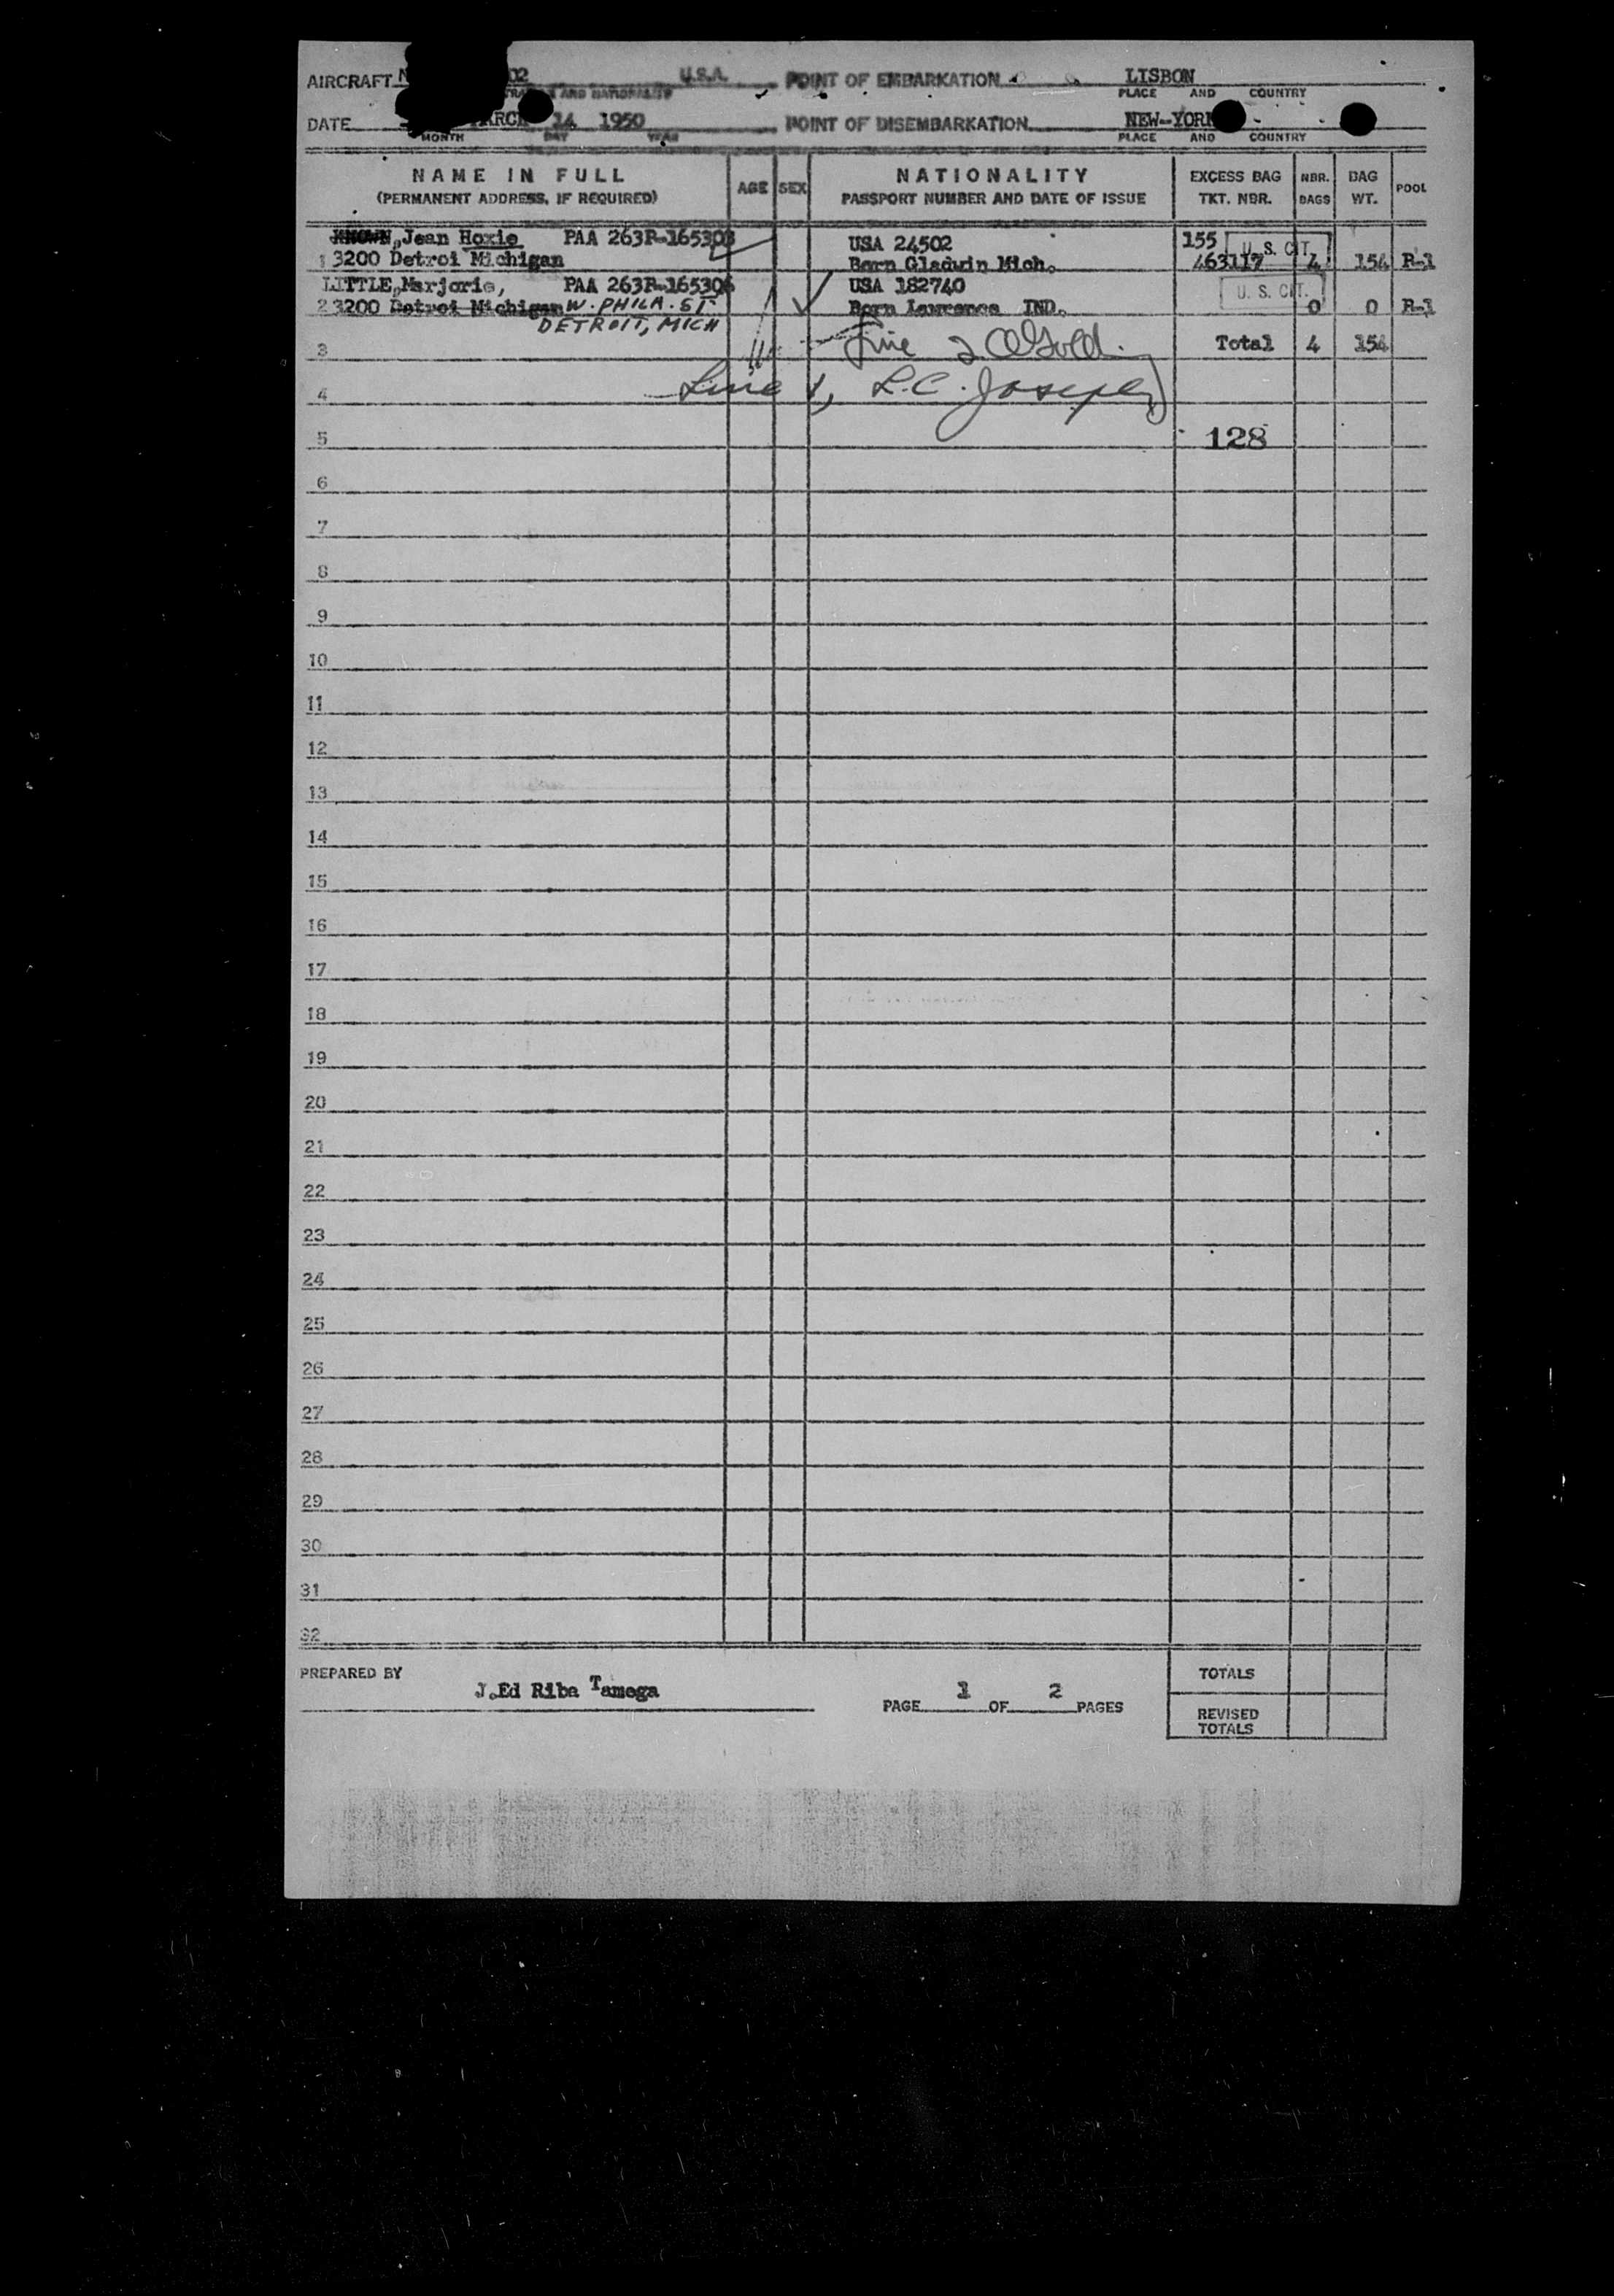 AIRCRAFT N 02 U.S.A. POINT OF EMBARKATION LISBON
AND NATIONALITY PLACE AND COUNTRY
DATE MARCH 14 1950 POINT OF DISEMBARKATION NEW-YORK
MONTH DAY YEAR PLACE AND COUNTRY
NAME IN FULL AGE SEX NATIONALITY EXCESS BAG NBR. BAG POOL
(PERMANENT ADDRESS, IF REQUIRED) PASSPORT NUMBER AND DATE OF ISSUE TKT. NBR. BAGS WT.
,Jean Hoxie PAA 263R-165303 USA 24502 155 U. S. CIT.
1 3200 Detroi Michigan Born Gladwin Mich. 463117 4 154 R-1
LITTLE,Marjorie, PAA 263R-165304 USA 182740 U. S. CIT.
2 3200 Detroi Michigan W. PHILA. ST. Born Lawrence IND. 0 0 R-1
DETROIT, MICH
3 Line 2 Total 4 154
4 Line 1, L.C. Joseph
5 128
6
7
8
9
10
11
12
13
14
15
16
17
18
19
20
21
22
23
24
25
26
27
28
29
30
31
32
PREPARED BY J.Ed Riba Tamega PAGE 1 OF 2 PAGES TOTALS
REVISED
TOTALS